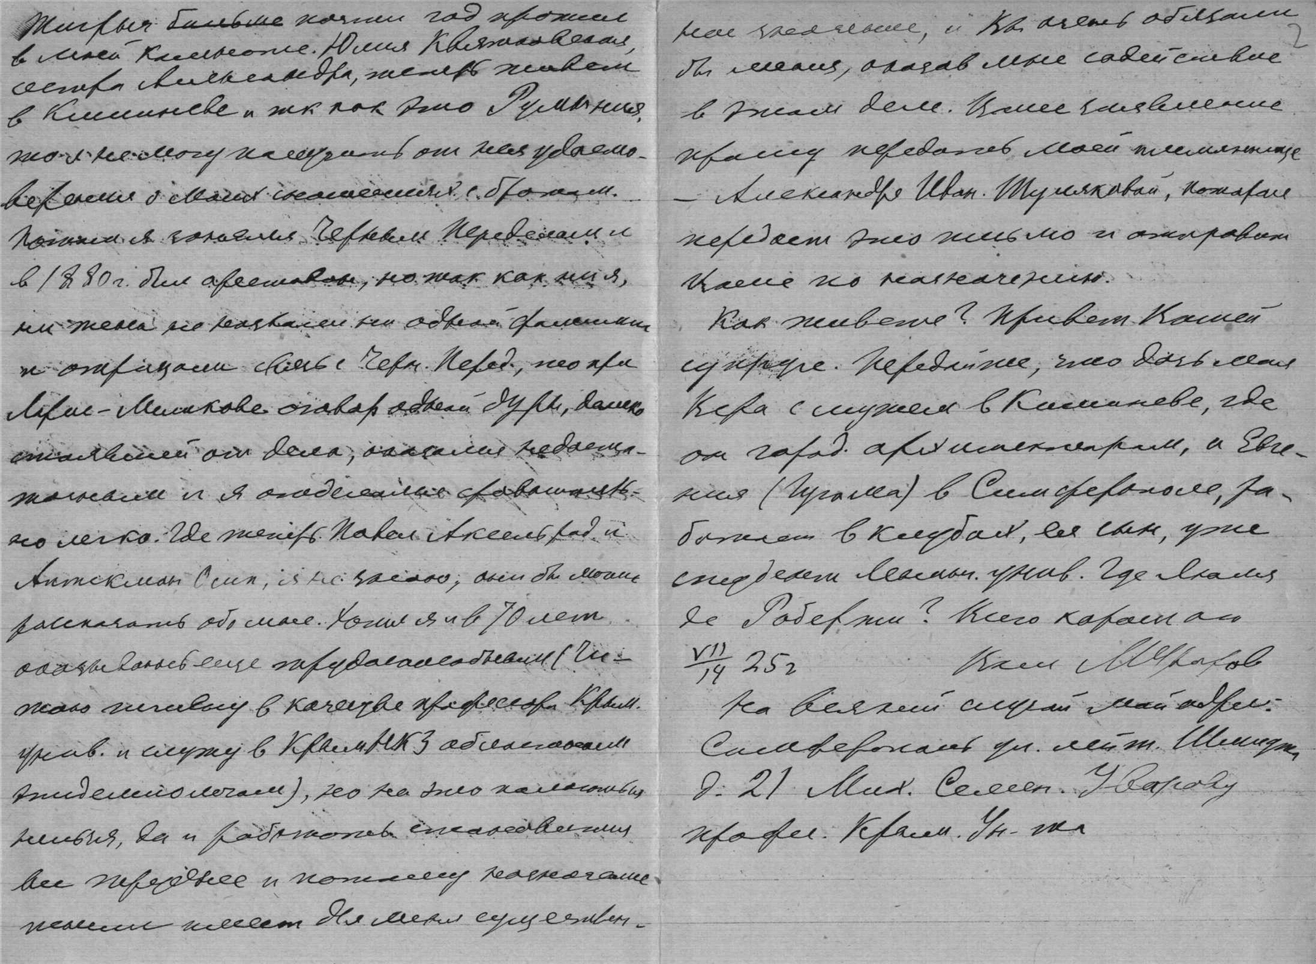 больше почти год прожил
в моей комнате. Юлия Квятковская,
сестра Александра, теперь живет
в Кишиневе и тк как это Румыния,
то я не могу получить от нея удосто-
верения о моих сношениях с братом.
Потом я занялся Черным Переделом и
в 1880 г. был арестован, но так как ни я,
ни жена не назвали ни одной фамилии
и отрицали связь с Черн. Перед., то при
Лорис-Меликове оговор одной дуры, далеко
стоявшей от дела, оказался недоста-
точным и я отделался сравнитель-
но легко. Где теперь Павел Аксельрод и
Аптекман Осип, я не знаю, они бы могли
рассказать обо мне. Хотя я и в 70 лет
оказываюсь еще трудоспособным (Чи-
таю гигиену в качестве профессора Крым.
унив. и служу в КрымНКЗ областным
эпидемиологом), но на это полагаться
нельзя, да и работать становится
все труднее и потому назначение
пенсии имеет для меня существен-
ное значение, и Вы очень обязали
бы меня, оказав мне содействие
в этом деле. Ваше заявление
прошу передать моей племяннице
— Александре Иван. которая
передаст это письмо и отправит
Ваше по назначению.
Как живете? Привет Вашей
супруге. Передайте, что дочь моя
Вера с мужем в Кишиневе, где
он город. архитектором, а Евге-
ния (Гугома) в Симферополе, ра-
ботает в клубах, ея сын, уже
студент унив. Где
де Роберти? Всего хорошаго
VII/14 25 г Ваш МУваров
На всякий случай мой адрес:
Симферополь ул. лейт. Шмидта
д. 21 Мих. Семен. Уварову
профес. Крым. Ун-та
2